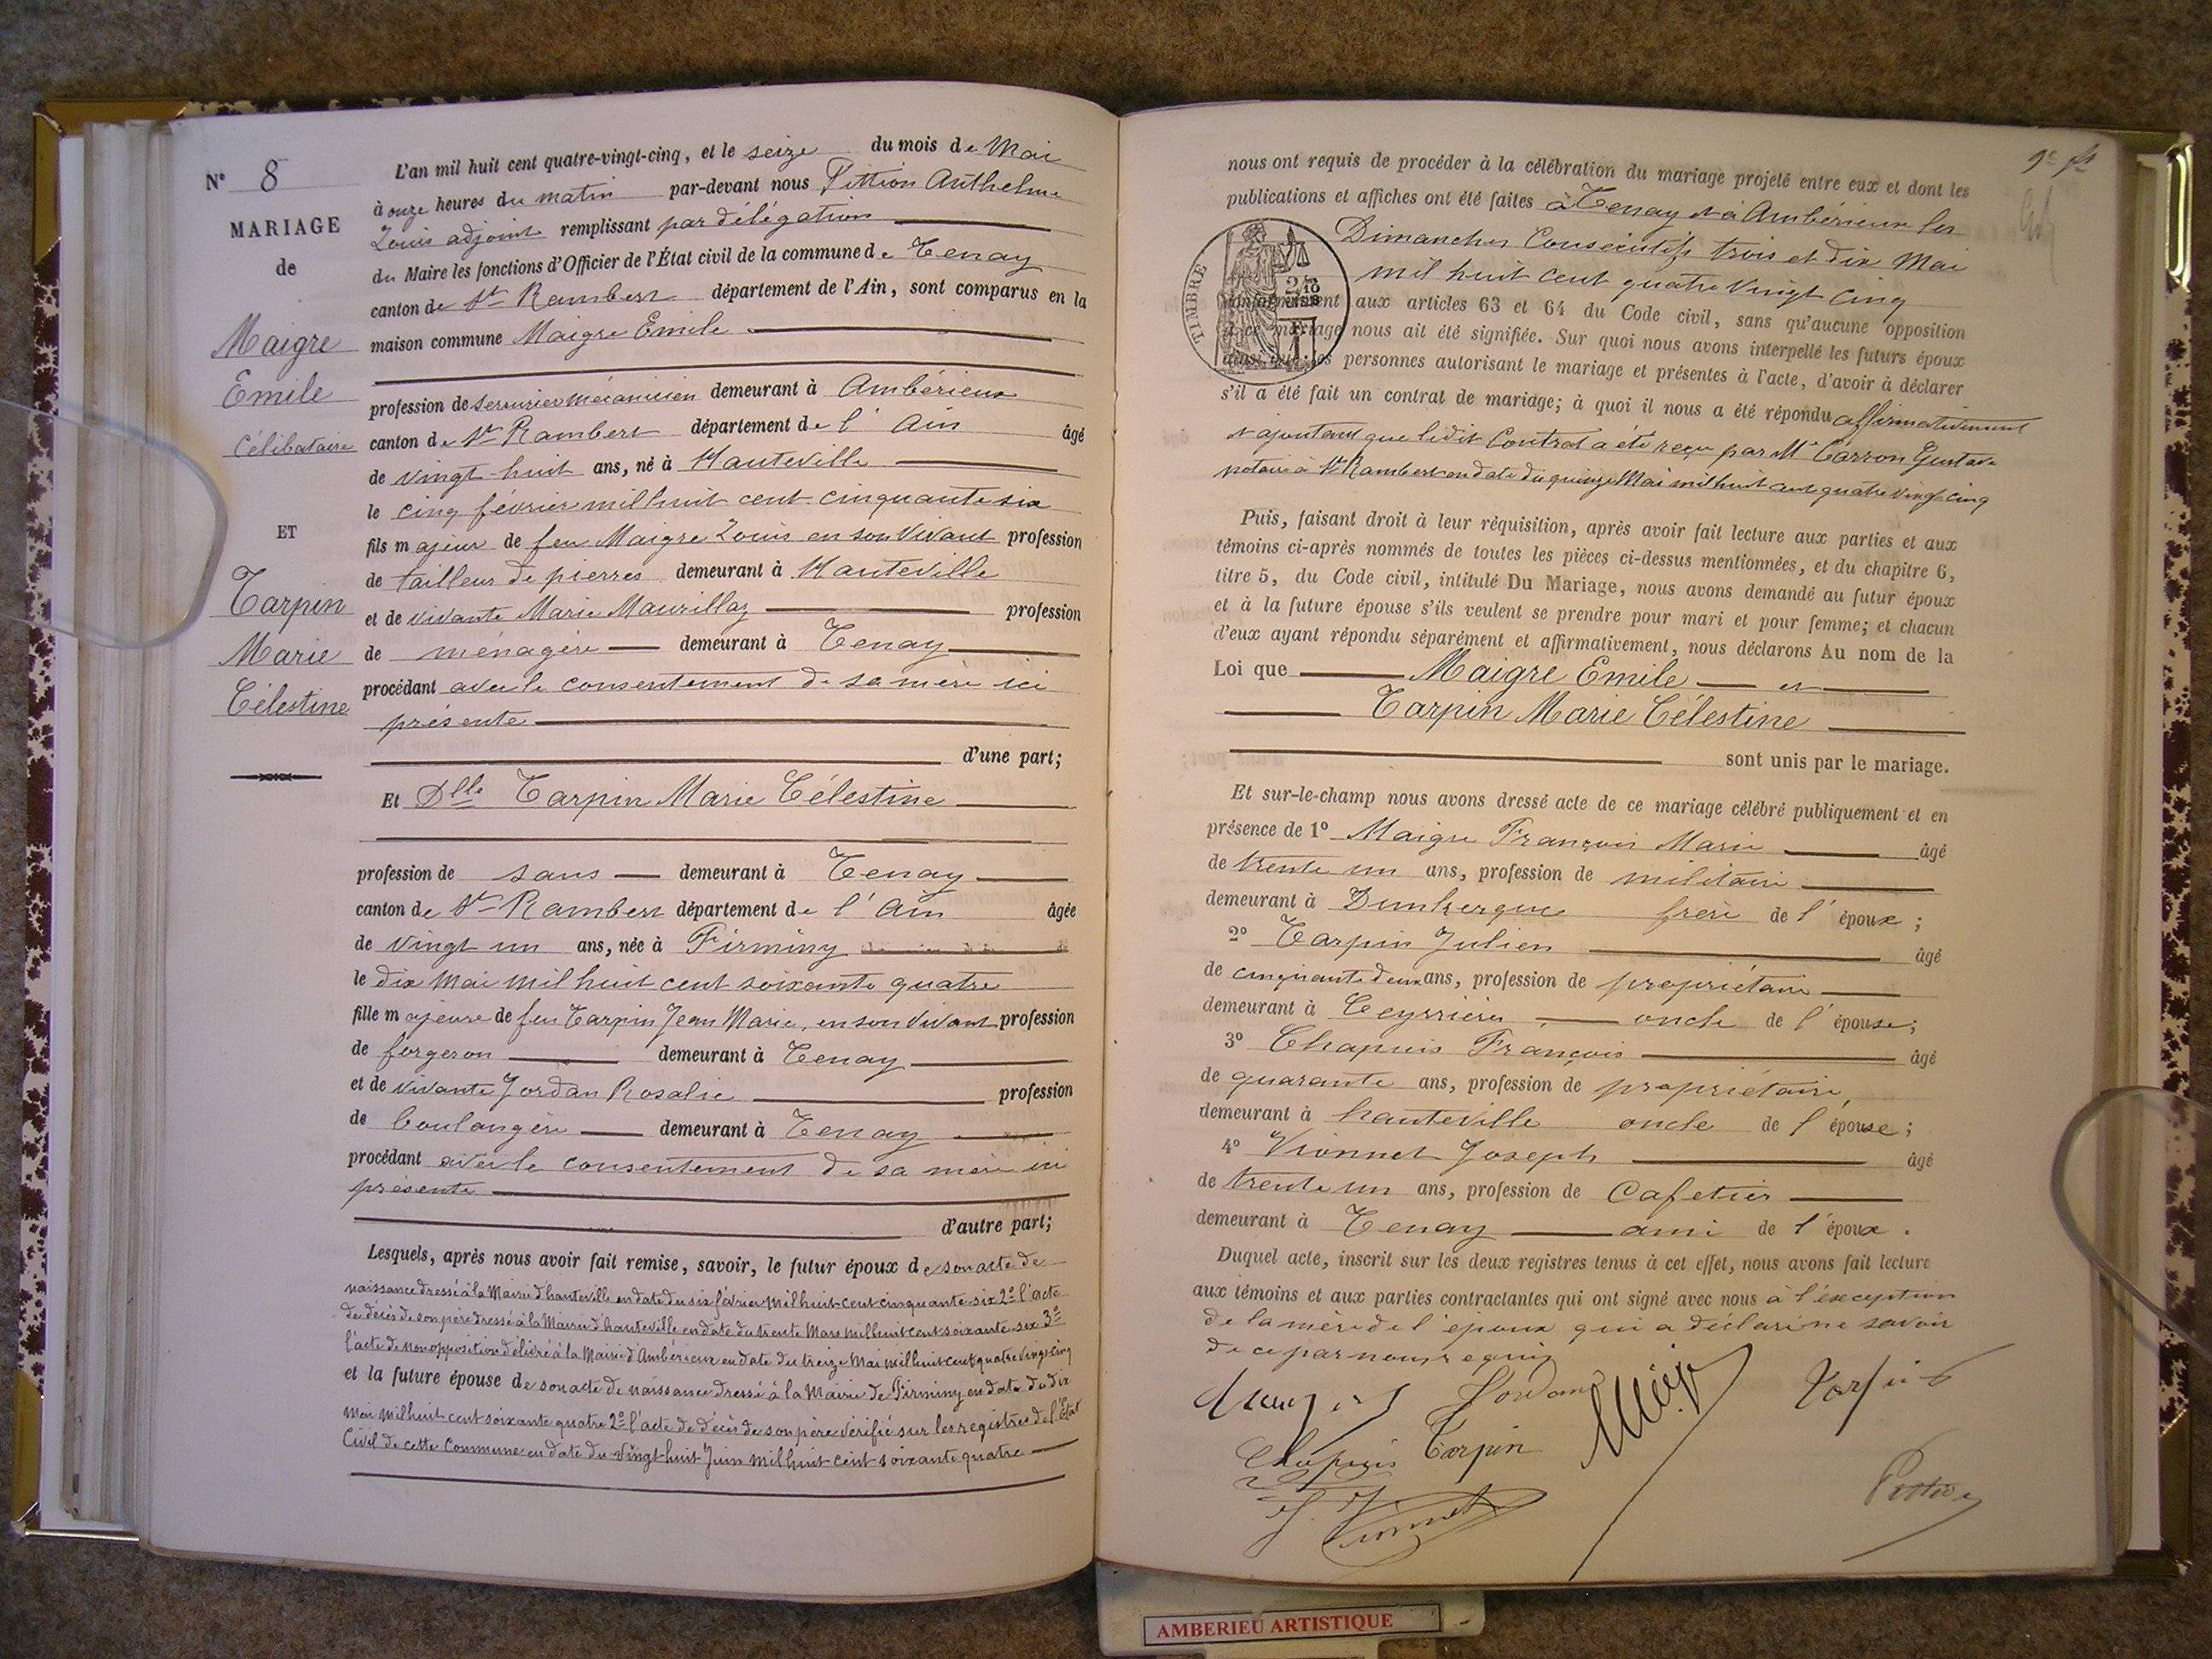 N° 8
MARIAGE
de
Maigre
Emile
Célibataire
ET
Tarpin
Marie
Célestine
L'an mil huit cent quatre-vingt-cinq, et le seize du mois de Mai
à onze heures du matin par-devant nous Pittion Anthelme
Louis adjoint remplissant par délégation
du Maire les fonctions d'Officier de l'État civil de la commune de Tenay
canton de St Rambert département de l'Ain, sont comparus en la
maison commune Maigre Emile
profession de serrurier mécanicien demeurant à Ambérieux
canton de St Rambert département de l'Ain âgé
de vingt huit ans, né à Hauteville
le cinq février mil huit cent cinquante six
fils majeur de feu Maigre Louis en son vivant profession
de tailleur de pierres demeurant à Hauteville
et de vivante Marie Maurillaz profession
de ménagère demeurant à Tenay
procédant avec le consentement de sa mère ici
présente
d'une part;
Et Dlle Tarpin Marie Célestine
profession de sans demeurant à Tenay
canton de St Rambert département de l'Ain âgée
de vingt un ans, née à Firminy
le dix Mai mil huit cent soixante quatre
fille majeure de feu Tarpin Jean Marie, en son vivant profession
de forgeron demeurant à Tenay
et de vivante Jordan Rosalie profession
de boulangère demeurant à Tenay
procédant avec le consentement de sa mère ici
présente
d'autre part;
Lesquels, après nous avoir fait remise, savoir, le futur époux de son acte de
naissance dressé à la Mairie d'hauteville en date du six février mil huit cent cinquante six 2° l'acte
de décès de son père dressé à la Mairie d'hauteville en date du trente Mars mil huit cent soixante six 3°
l'acte de non opposition délivré à la Mairie d'Ambérieux en date du treize Mai mil huit cent quatre vingt cinq
et la future épouse de son acte de naissance dressé à la Mairie de Firminy en date du dix
Mai mil huit cent soixante quatre 2° l'acte de décès de son père vérifié sur les registres de l'Etat
Civil de cette Commune en date du vingt huit Juin mil huit cent soixante quatre
nous ont requis de procéder à la célébration du mariage projeté entre eux et dont les
publications et affiches ont été faites à Tenay et à Ambérieux les
Dimanches Consécutifs trois et dix Mai
mil huit cent quatre vingt cinq
TIMBRE
conformément aux articles 63 et 64 du Code civil, sans qu'aucune opposition
à ce mariage nous ait été signifiée. Sur quoi nous avons interpellé les futurs époux
ainsi que les personnes autorisant le mariage et présentes à l'acte, d'avoir à déclarer
s'il a été fait un contrat de mariage; à quoi il nous a été répondu affirmativement
et ajoutant que ledit Contrat a été reçu par Me Carron Gustave
notaire à St Rambert en date du quinze Mai mil huit cent quatre vingt cinq
Puis, faisant droit à leur réquisition, après avoir fait lecture aux parties et aux
témoins ci-après nommés de toutes les pièces ci-dessus mentionnées, et du chapitre 6,
titre 5, du Code civil, intitulé Du Mariage, nous avons demandé au futur époux
et à la future épouse s'ils veulent se prendre pour mari et pour femme; et chacun
d'eux ayant répondu séparément et affirmativement, nous déclarons Au nom de la
Loi que Maigre Emile et
Tarpin Marie Célestine
sont unis par le mariage.
Et sur-le-champ nous avons dressé acte de ce mariage célébré publiquement et en
présence de 1° Maigre François Marie âgé
de trente un ans, profession de militaire
demeurant à Dunkerque frère de l'époux;
2° Tarpin Julien âgé
de cinquante deux ans, profession de propriétaire
demeurant à Ceyzrieu oncle de l'épouse;
3° Chapuis François âgé
de quarante ans, profession de propriétaire
demeurant à hauteville oncle de l'épouse;
4° Vionnet Joseph âgé
de trente un ans, profession de Cafetier
demeurant à Tenay ami de l'époux.
Duquel acte, inscrit sur les deux registres tenus à cet effet, nous avons fait lecture
aux témoins et aux parties contractantes qui ont signé avec nous à l'exception
de la mère de l'époux qui a déclaré ne savoir
de ce par nous requis
Jordan
Tarpin
Chapuis Tarpin
J. Vionnet
Pittion
AMBERIEU ARTISTIQUE